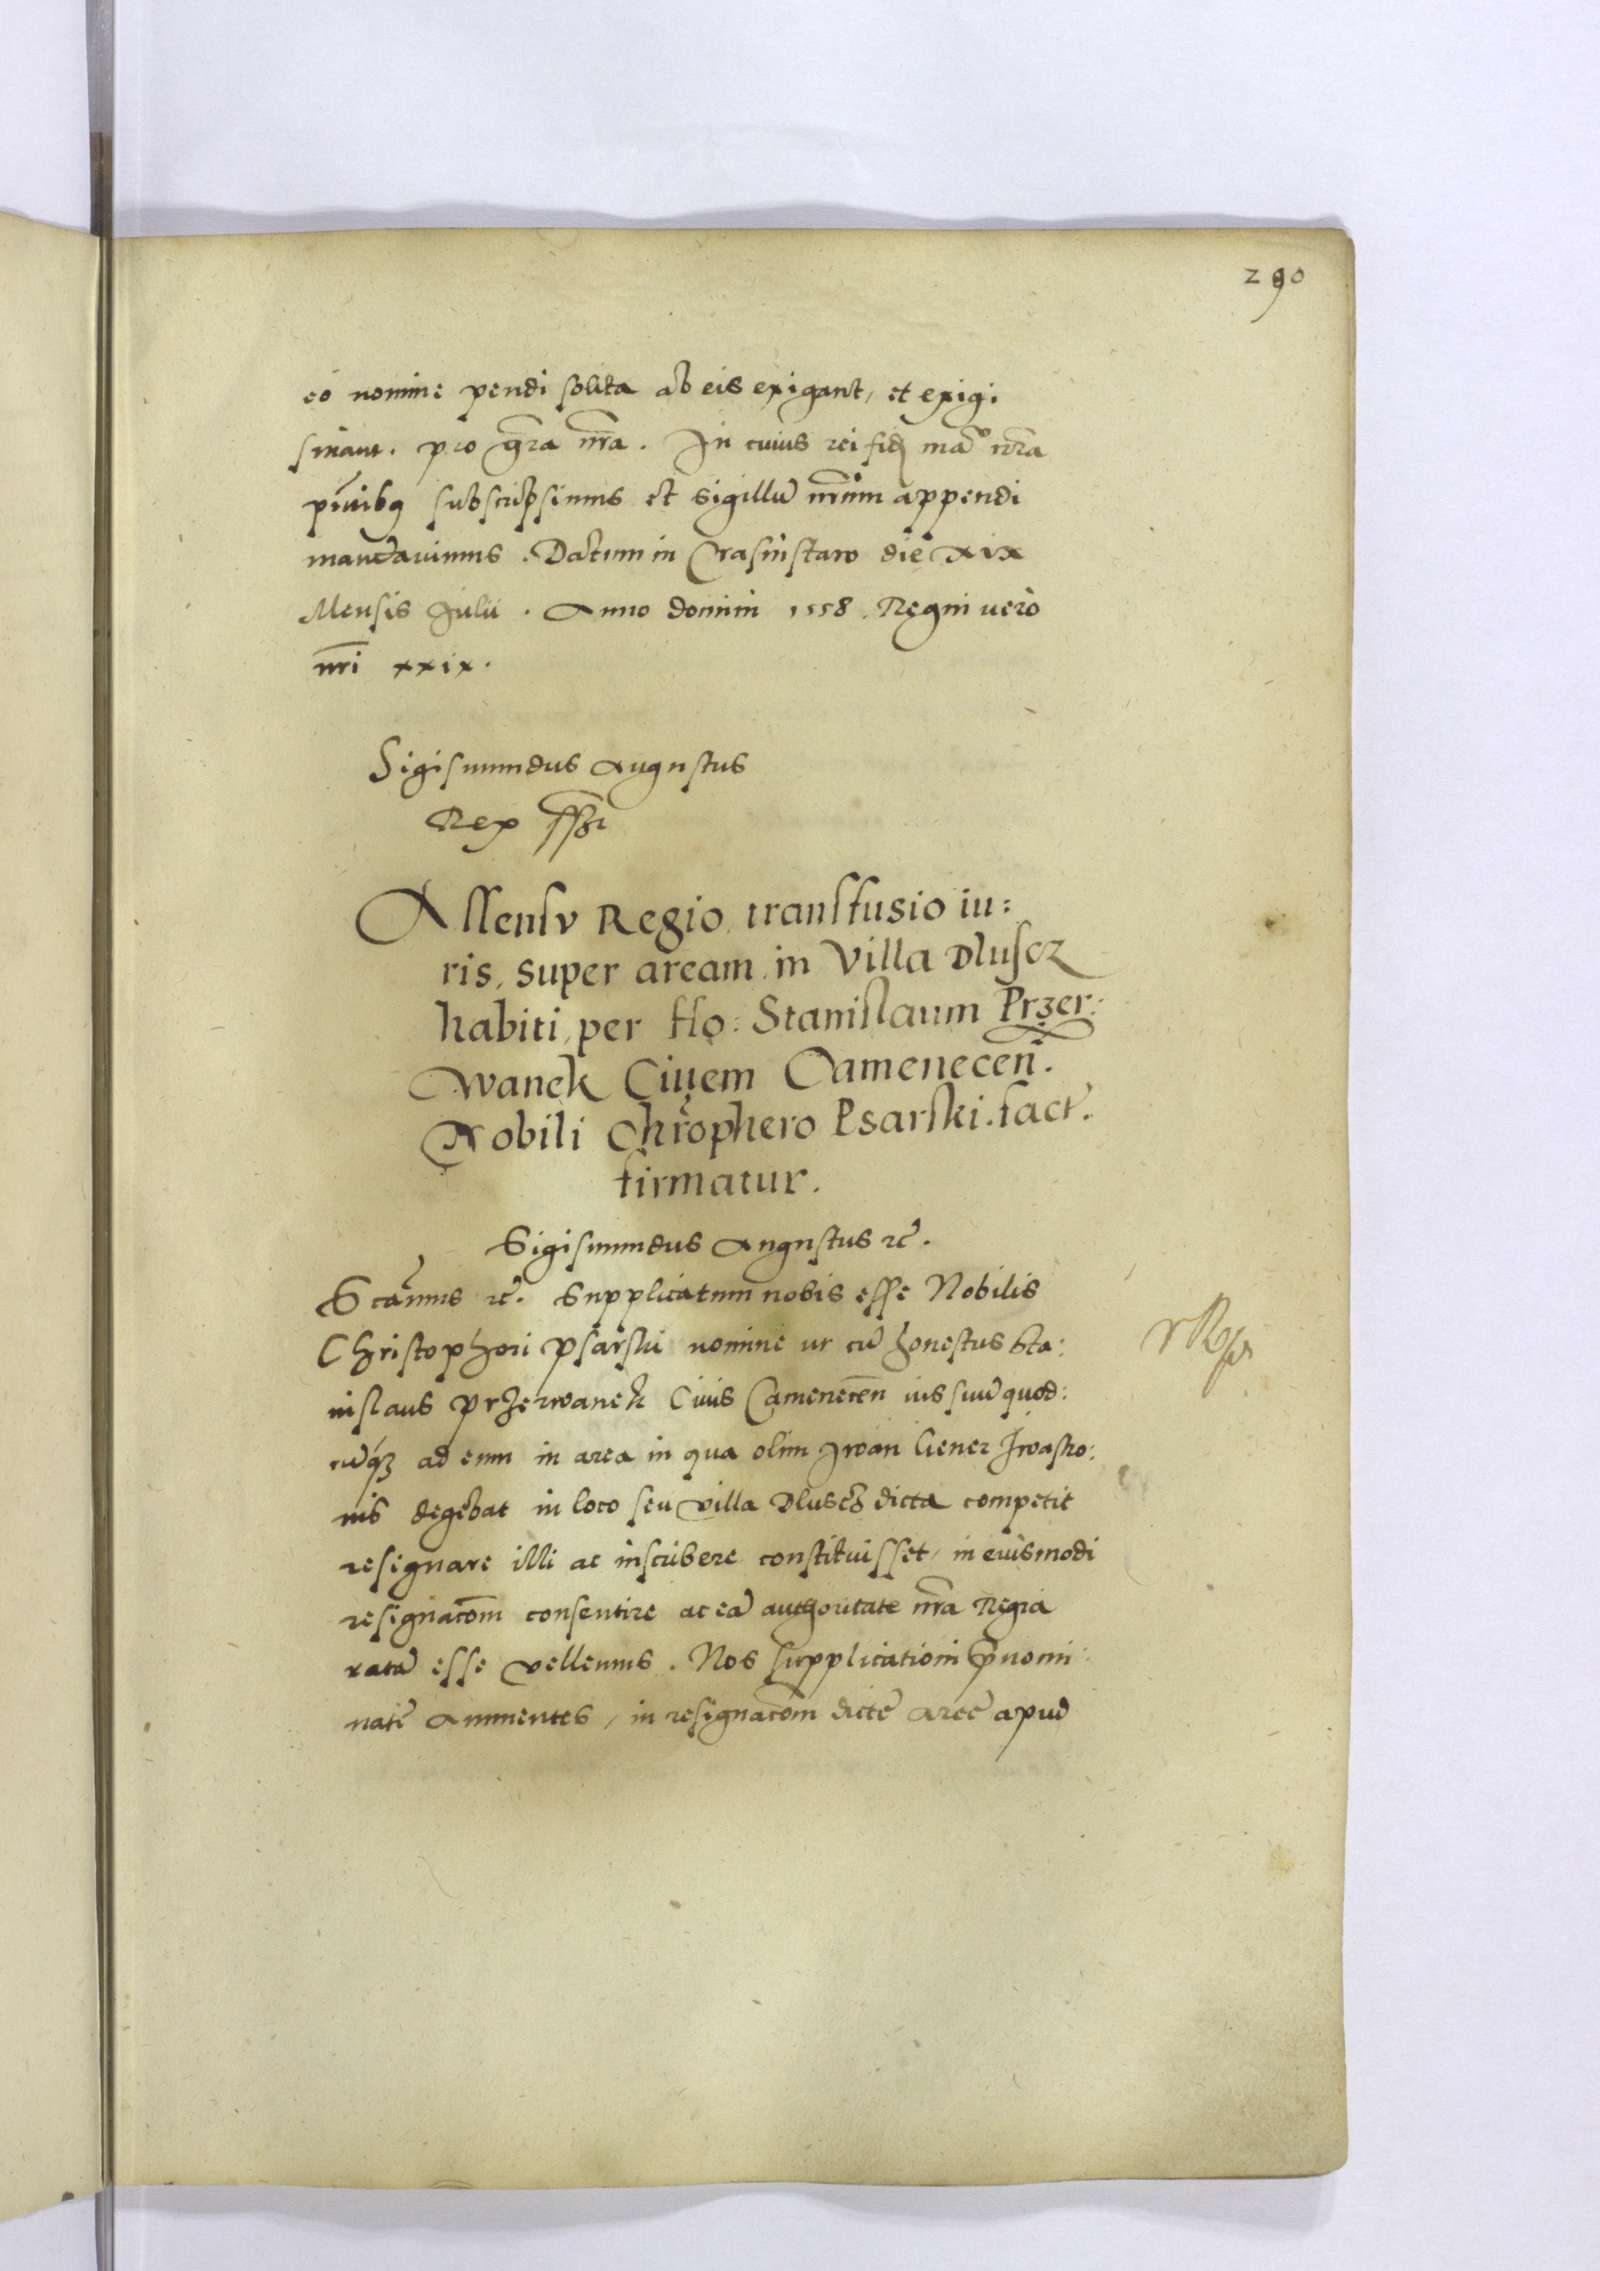 290
eo nomine pendi solita ab eis exigant, et exigi
sinant. pro gr̃a nr̃a. In cuius rei fidẽ manu nr̃a
pñtibus subscripsimus et sigillũ nr̃um appendi
mandavimus. Datum in Crasnistaw die xix
Mensis Julii. Anno domini 1558. Regni uerò
nr̃i xxix.
Sigismundus Augustus
Rex sst
Assensv Regio, transfusio iu:
ris, super aream, in Villa Dlusez
habiti, per Ho: Stanislaum Przer:
wanek Ciuem Camenecen̄.
Nobili Chr̃ophero Psarski. fact̃.
firmatur.
Sigismundus Augustus rc̃.
Scam̃us rc̃. Supplicatum nobis esse Nobilis
Christophori Psarski nomine ut cũ honestus Sta:
nislaus Przerwanek Ciuis Camenecen̄ ius suũ quod:
cũq3 ad eum in area in qua olim Iwan Gener Iwasko:
nis degebat in loco seu villa Dlusez dicta competit
resignare illi ac inscribere constituisset, in eiusmodi
resignac̃om consentire ac eã authoritate nr̃a Regia
ratã esse vellemus. Nos supplicationi p̃nomi:
natẽ annuentes, in resignac̃om dictẽ areẽ apud